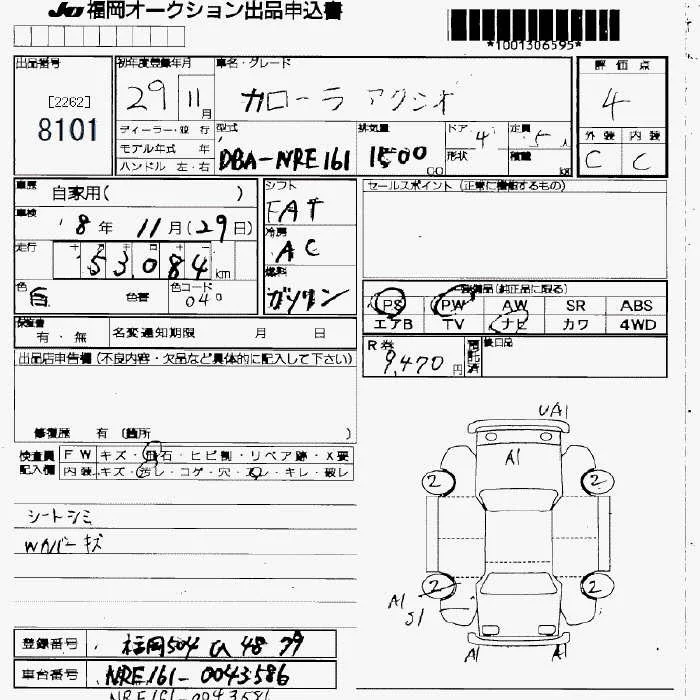 JU 福岡オークション出品申込書
*1001306595*
出品番号 初年度登録年月 車名・グレード 評価点
[2262]
8101
29 11 月 カローラ アクシオ 4
ディーラー・並 行 型式 排気量 ドア 4 定員 5 人 外装 内装
モデル年式 年 DBA-NRE161 1500 CC 形状 積載 kg C C
ハンドル 左・右
車歴 自家用( ) シフト FAT セールスポイント (正常に機能するもの)
車検 18年 11月(29日) 冷房 AC
走行 53084 km 燃料 ガソリン
色 白 色替 色コード 040
装備品(純正品に限る)
PS PW AW SR ABS
エアB TV ナビ カワ 4WD
保証書 有・無 名変通知期限 月 日
R券 9,470円 預託済 後日品
出品店申告欄 (不良内容・欠品など具体的に記入して下さい)
修復歴 有 (箇所 )
検査員記入欄 FW キズ・飛石・ヒビ割・リペア跡・X要
内装 キズ・汚レ・コゲ・穴・スレ・キレ・破レ
シートシミ
Wカバーキズ
UA1
A1
2 2
2 2
A1
S1
A1 A1
登録番号 福岡504 ひ 48 79
車台番号 NRE161-0043586
NRE161-0043586